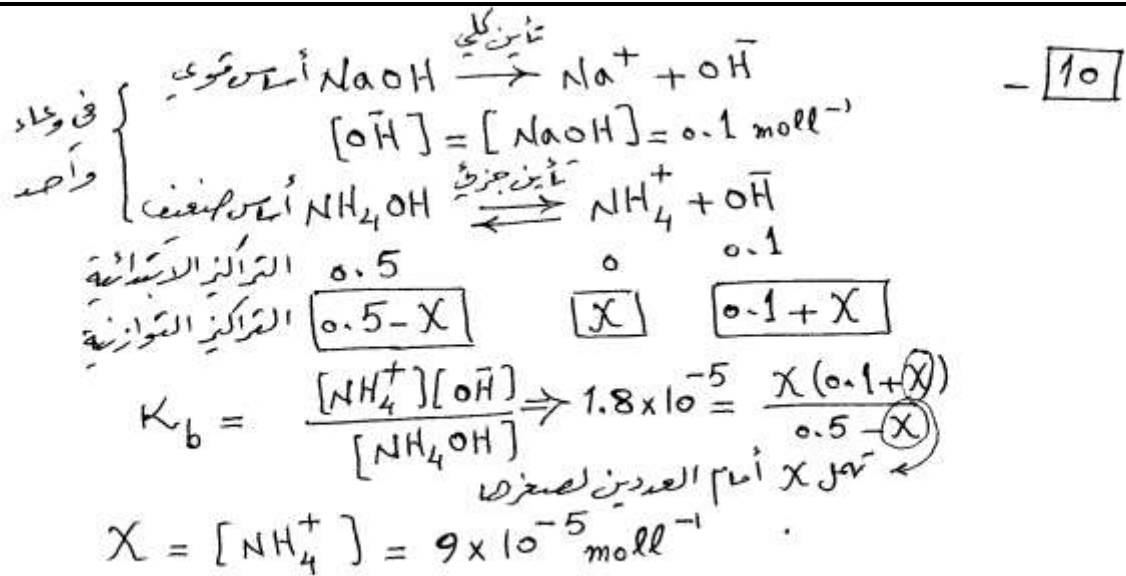 10 -
في وعاء واحد
أساس قوي NaOH ⟶ Na⁺ + OH⁻ تأين كلي
[OH⁻] = [NaOH] = 0.1 mol l⁻¹
أساس ضعيف NH₄OH ⇌ NH₄⁺ + OH⁻ تأين جزئي
التراكيز الابتدائية 0.5 0 0.1
التراكيز التوازنية 0.5 - X X 0.1 + X
K_b = [NH₄⁺][OH⁻] / [NH₄OH] ⇒ 1.8 × 10⁻⁵ = X (0.1 + X) / 0.5 - X
تهمل X أمام العددين لصغرها
X = [NH₄⁺] = 9 × 10⁻⁵ mol l⁻¹ .